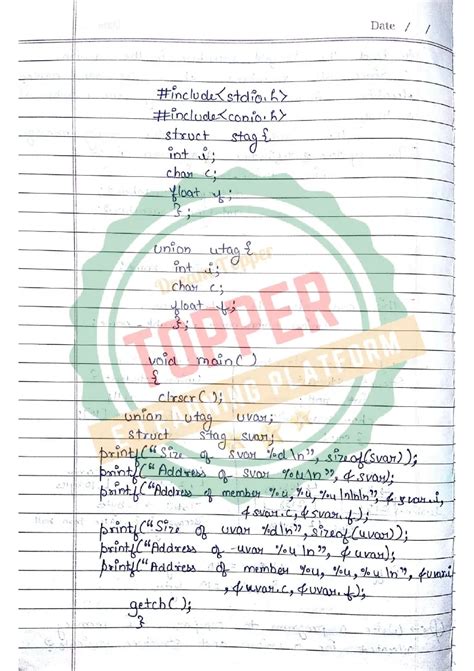 Date / /
#include<stdio.h>
#include<conio.h>
struct stag{
int i;
char c;
float f;
};
union utag{
int i;
char c;
float f;
};
void main()
{
clrscr();
union utag uvar;
struct stag svar;
printf("Size of svar %d\n", sizeof(svar));
printf("Address of svar %u\n", &svar);
printf("Address of member %u, %u, %u\n\n\n", &svar.i,
&svar.c, &svar.f);
printf("Size of uvar %d\n", sizeof(uvar));
printf("Address of uvar %u\n", &uvar);
printf("Address of member %u, %u, %u\n", &uvar.i
, &uvar.c, &uvar.f);
getch();
}
TOPPER
E-LEARNING PLATFORM